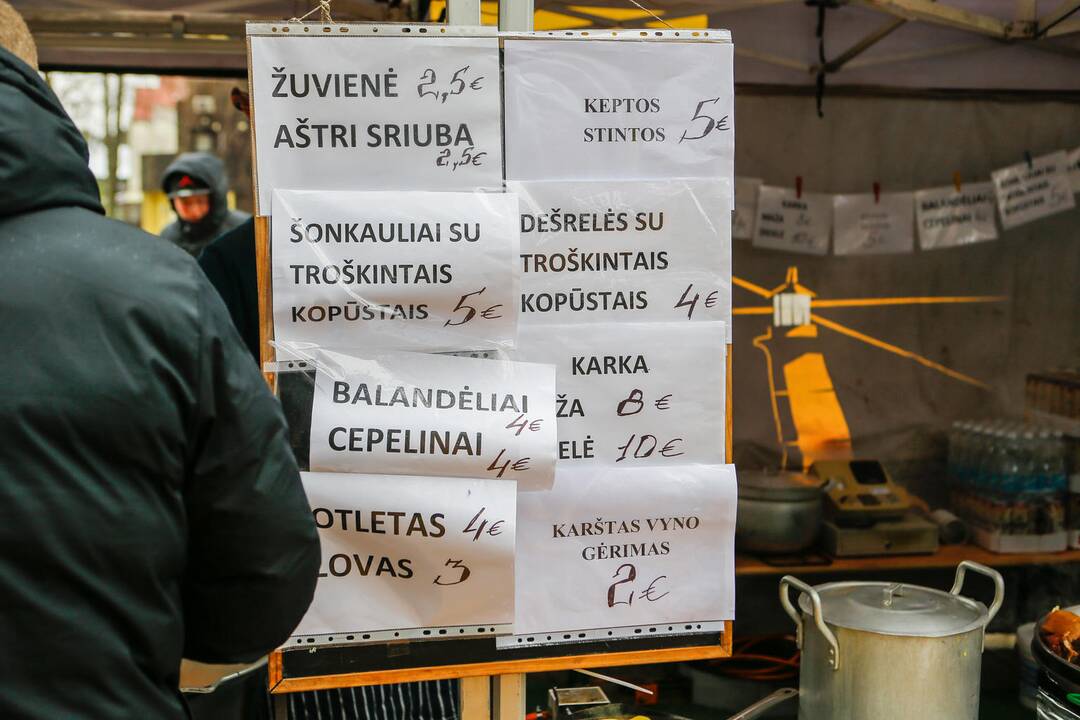 ŽUVIENĖ 2,5€
AŠTRI SRIUBA
2,5€
KEPTOS
STINTOS 5€
ŠONKAULIAI SU
TROŠKINTAIS
KOPŪSTAIS 5€
DEŠRELĖS SU
TROŠKINTAIS
KOPŪSTAIS 4€
BALANDĖLIAI
4€
CEPELINAI
4€
KARKA
ŽA 8€
ELĖ 10€
OTLETAS 4€
LOVAS 3
KARŠTAS VYNO
GĖRIMAS
2€
KARKA
MAŽA
BALANDĖLIAI
CEPELINAI